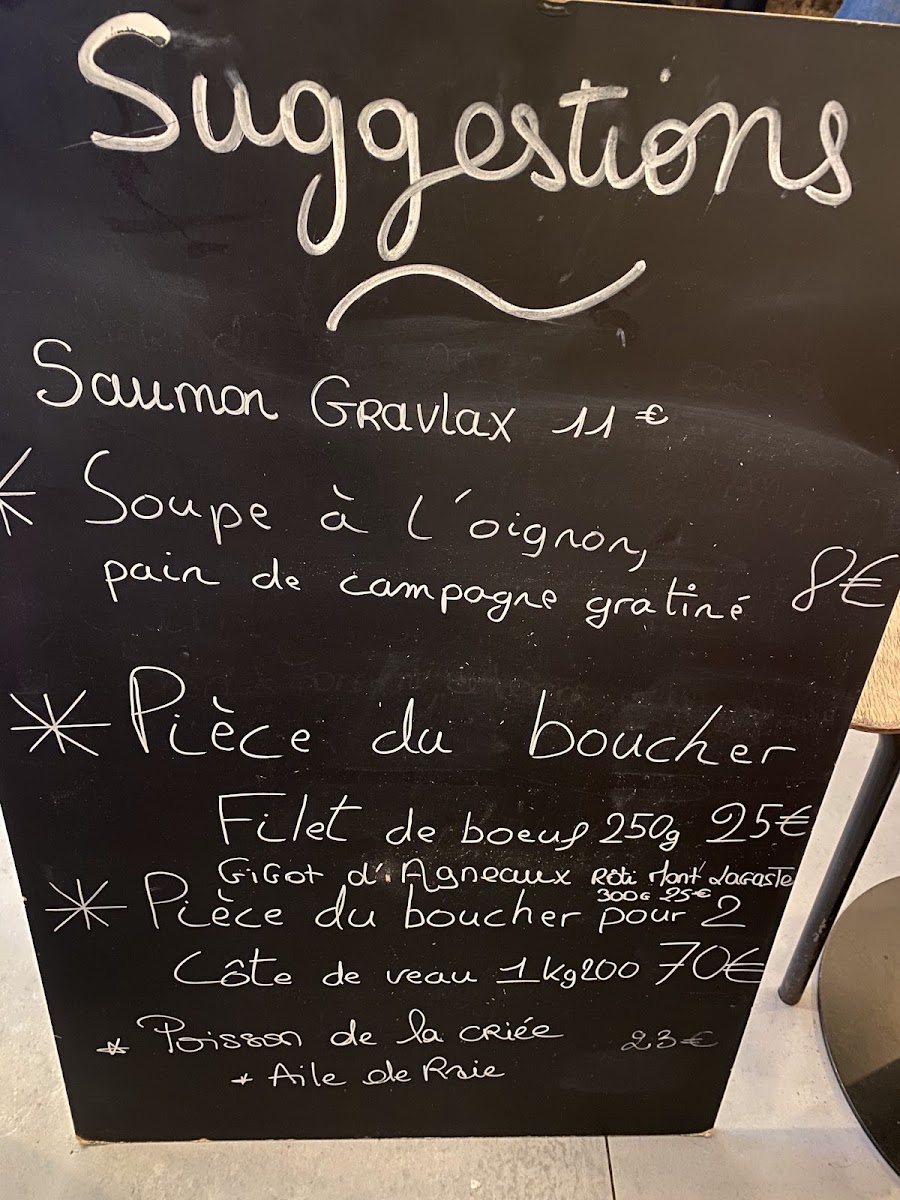 Suggestions
Saumon Gravlax 11€
Soupe à l'oignon,
pain de campagne gratiné 8€
Pièce du boucher
Filet de boeuf 250g 25€
Gigot d'Agneaux Rôti Mont Lagaste
300G 25€
Pièce du boucher pour 2
Côte de veau 1kg200 70€
Poisson de la criée 23€
Aile de Raie